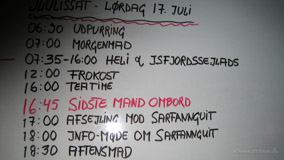 ILULISSAT - LØRDAG 17. JULI
06:30 UDPURRING
07:00 MORGENMAD
07:35-16:00 HELI & ISFJORDSSEJLADS
12:00 FROKOST
16:00 TEATIME
16:45 SIDSTE MAND OMBORD
17:00 AFSEJLING MOD SARFANNGUIT
18:00 INFO-MØDE OM SARFANNGUIT
18:30 AFTENSMAD